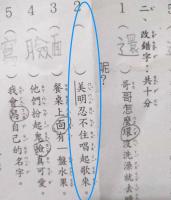 二、改錯字：共十分
1 （還）哥哥怎麼環沒洗澡就去
呢？
2 （ ）美明忍不住唱起歌來。
3 （ ）餐桌上面有一盤水果。
4 （臉）他們扮起鬼 真可愛。
5 （寫）我會 自己的名字。